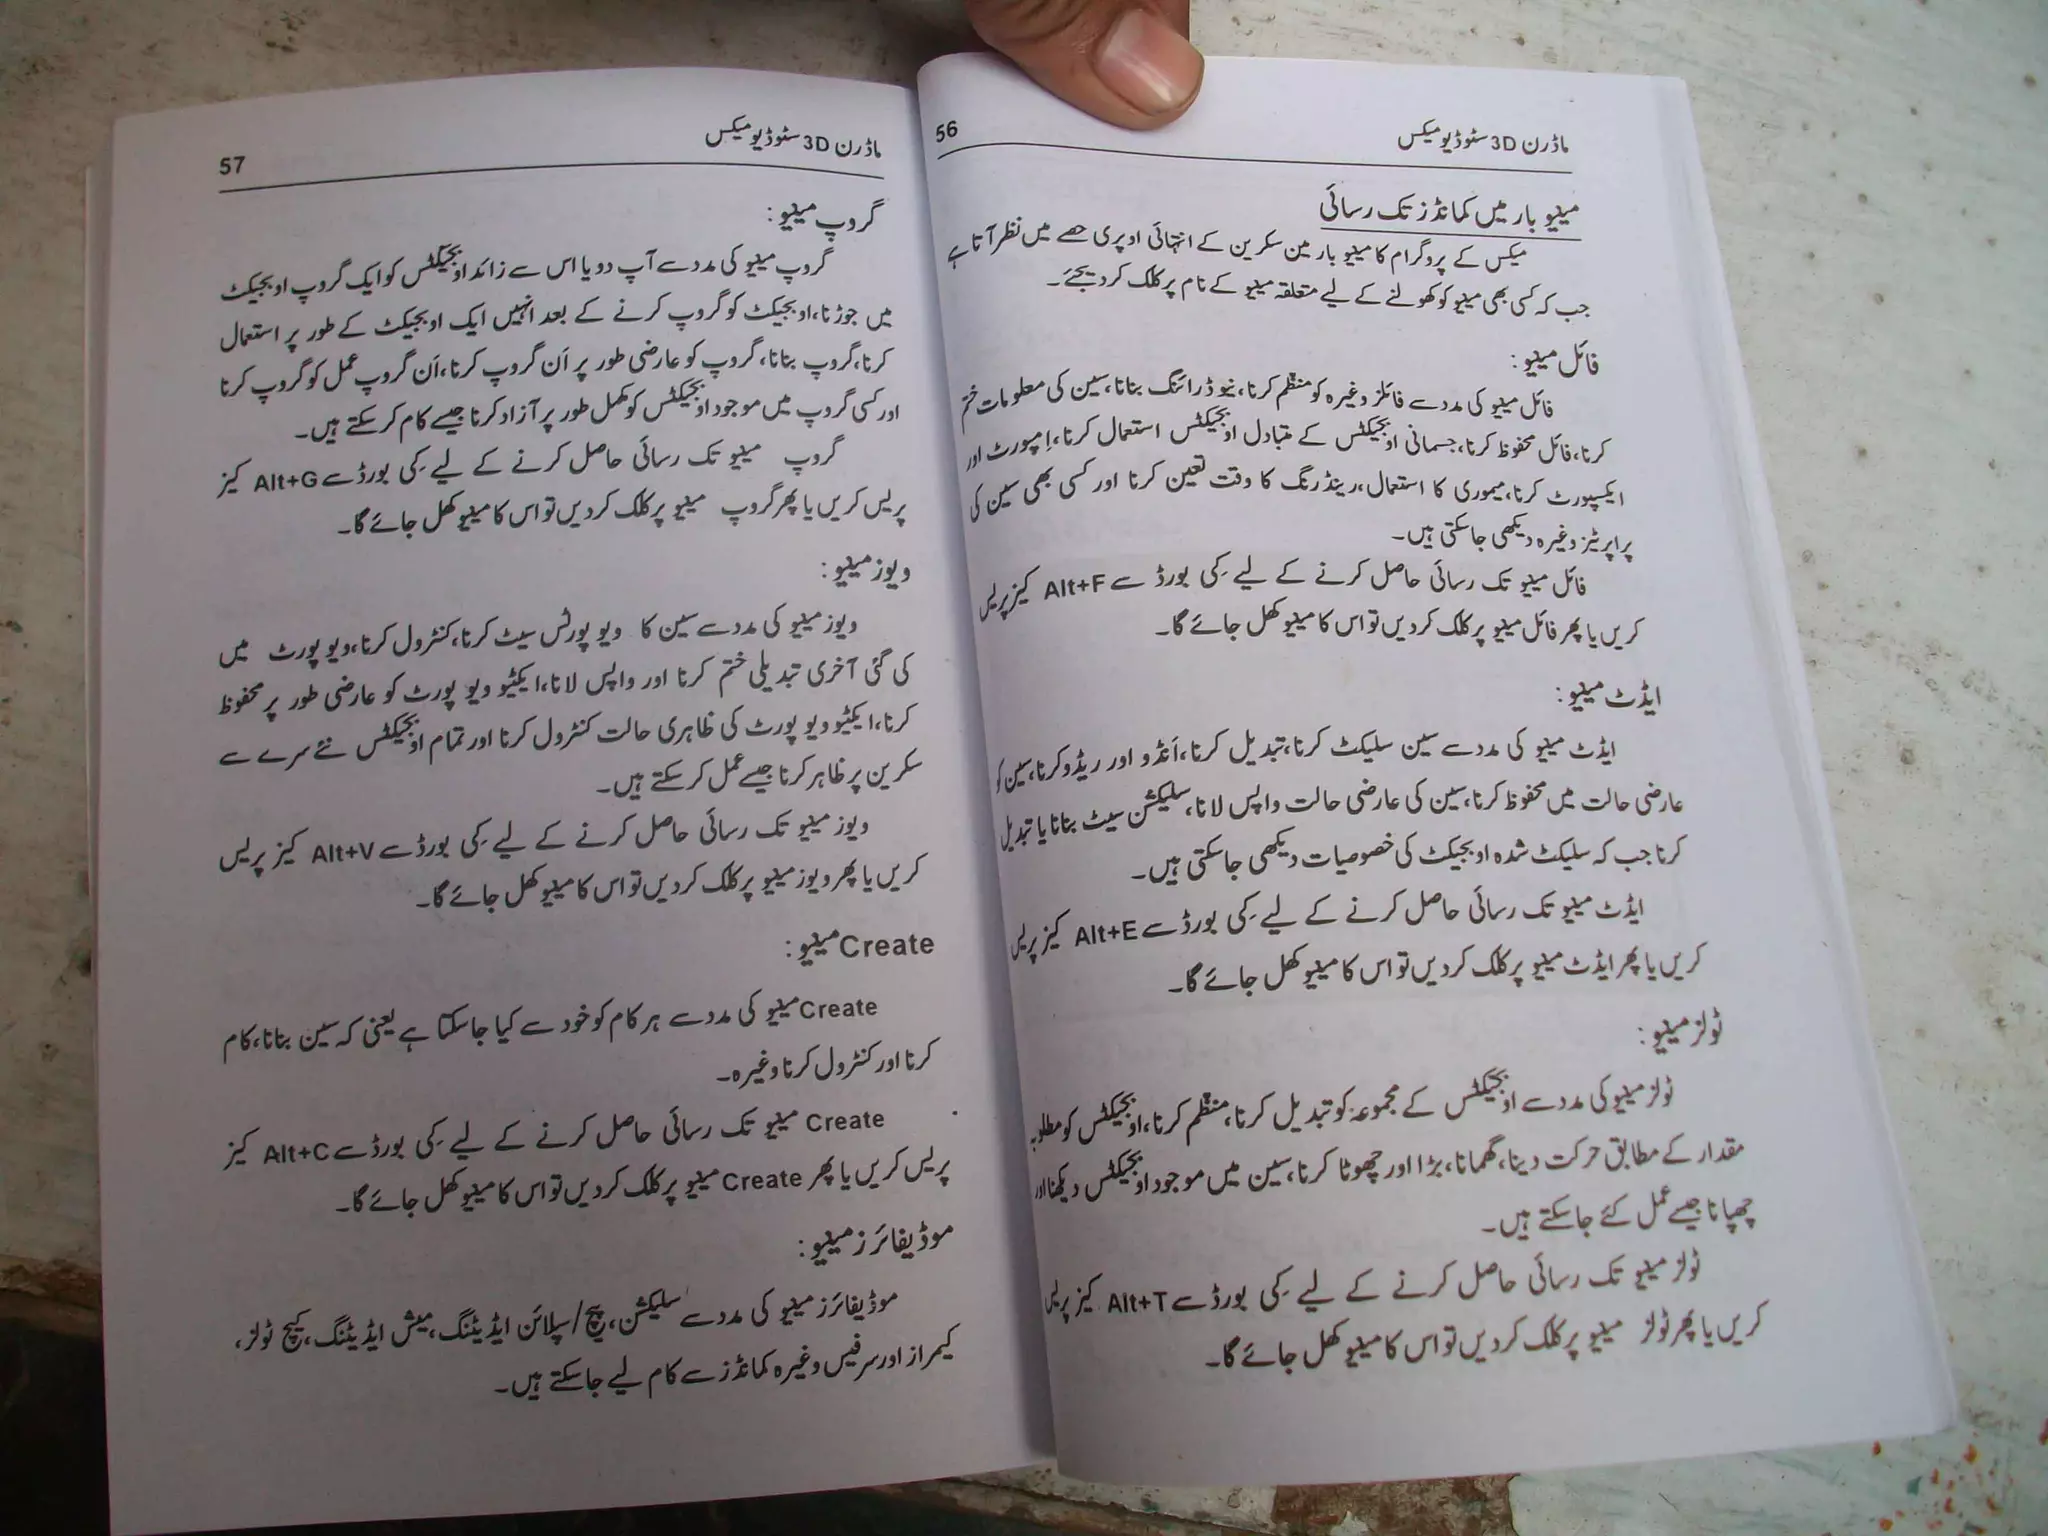 ماڈرن 3D سٹوڈیو میکس
56
مینیو بار میں کمانڈز تک رسائی
میکس کے پروگرام کا مینیو بار مین سکرین کے انتہائی اوپری حصے میں نظر آتا ہے
جب کہ کسی بھی مینیو کو کھولنے کے لیے متعلقہ مینیو کے نام پر کلک کر دیجئے۔
فائل مینیو:
فائل مینیو کی مدد سے فائلز وغیرہ کو منظم کرنا، نیو ڈرائنگ بنانا، سین کی معلومات ختم
کرنا، فائل محفوظ کرنا، جسمانی اوبجیکٹس کے متبادل اوبجیکٹس استعمال کرنا، اِمپورٹ اور
ایکسپورٹ کرنا، میموری کا استعمال، رینڈرنگ کا وقت تعین کرنا اور کسی بھی سین کی
پراپرٹیز وغیرہ دیکھی جاسکتی ہیں۔
فائل مینیو تک رسائی حاصل کرنے کے لیے کی بورڈ سے Alt+F کیز پریس
کریں یا پھر فائل مینیو پر کلک کر دیں تو اس کا مینیو کھل جائے گا۔
ایڈٹ مینیو:
ایڈٹ مینیو کی مدد سے سین سلیکٹ کرنا، تبدیل کرنا، اَنڈو اور ریڈو کرنا، سین کو
عارضی حالت میں محفوظ کرنا، سین کی عارضی حالت واپس لانا، سلیکشن سیٹ بنانا یا تبدیل
کرنا جب کہ سلیکٹ شدہ اوبجیکٹ کی خصوصیات دیکھی جاسکتی ہیں۔
ایڈٹ مینیو تک رسائی حاصل کرنے کے لیے کی بورڈ سے Alt+E کیز پریس
کریں یا پھر ایڈٹ مینیو پر کلک کر دیں تو اس کا مینیو کھل جائے گا۔
ٹولز مینیو:
ٹولز مینیو کی مدد سے اوبجیکٹس کے مجموعہ کو تبدیل کرنا، منظم کرنا، اوبجیکٹس کو مطلوبہ
مقدار کے مطابق حرکت دینا، گھمانا، بڑا اور چھوٹا کرنا، سین میں موجود اوبجیکٹس دیکھنا اور
چھپانا جیسے عمل کئے جاسکتے ہیں۔
ٹولز مینیو تک رسائی حاصل کرنے کے لیے کی بورڈ سے Alt+T کیز پریس
کریں یا پھر ٹولز مینیو پر کلک کر دیں تو اس کا مینیو کھل جائے گا۔
ماڈرن 3D سٹوڈیو میکس
57
گروپ مینیو:
گروپ مینیو کی مدد سے آپ دو یا اس سے زائد اوبجیکٹس کو ایک گروپ اوبجیکٹ
میں جوڑنا، اوبجیکٹ کو گروپ کرنے کے بعد انہیں ایک اوبجیکٹ کے طور پر استعمال
کرنا، گروپ بنانا، گروپ کو عارضی طور پر اَن گروپ کرنا، اَن گروپ عمل کو گروپ کرنا
اور کسی گروپ میں موجود اوبجیکٹس کو مکمل طور پر آزاد کرنا جیسے کام کر سکتے ہیں۔
گروپ مینیو تک رسائی حاصل کرنے کے لیے کی بورڈ سے Alt+G کیز
پریس کریں یا پھر گروپ مینیو پر کلک کر دیں تو اس کا مینیو کھل جائے گا۔
ویوز مینیو:
ویوز مینیو کی مدد سے سین کا ویو پورٹس سیٹ کرنا، کنٹرول کرنا، ویو پورٹ میں
کی گئی آخری تبدیلی ختم کرنا اور واپس لانا، ایکٹیو ویو پورٹ کو عارضی طور پر محفوظ
کرنا، ایکٹیو ویو پورٹ کی ظاہری حالت کنٹرول کرنا اور تمام اوبجیکٹس نئے سرے سے
سکرین پر ظاہر کرنا جیسے عمل کر سکتے ہیں۔
ویوز مینیو تک رسائی حاصل کرنے کے لیے کی بورڈ سے Alt+V کیز پریس
کریں یا پھر ویوز مینیو پر کلک کر دیں تو اس کا مینیو کھل جائے گا۔
Create مینیو:
Create مینیو کی مدد سے ہر کام کو خود سے کیا جاسکتا ہے یعنی کہ سین بنانا، کام
کرنا اور کنٹرول کرنا وغیرہ۔
Create مینیو تک رسائی حاصل کرنے کے لیے کی بورڈ سے Alt+C کیز
پریس کریں یا پھر Create مینیو پر کلک کر دیں تو اس کا مینیو کھل جائے گا۔
موڈیفائرز مینیو:
موڈیفائرز مینیو کی مدد سے سلیکشن، پیچ/سپلائن ایڈیٹنگ، میش ایڈیٹنگ، کیچ ٹولز،
کیمراز اور سرفیس وغیرہ کمانڈز سے کام لیے جاسکتے ہیں۔